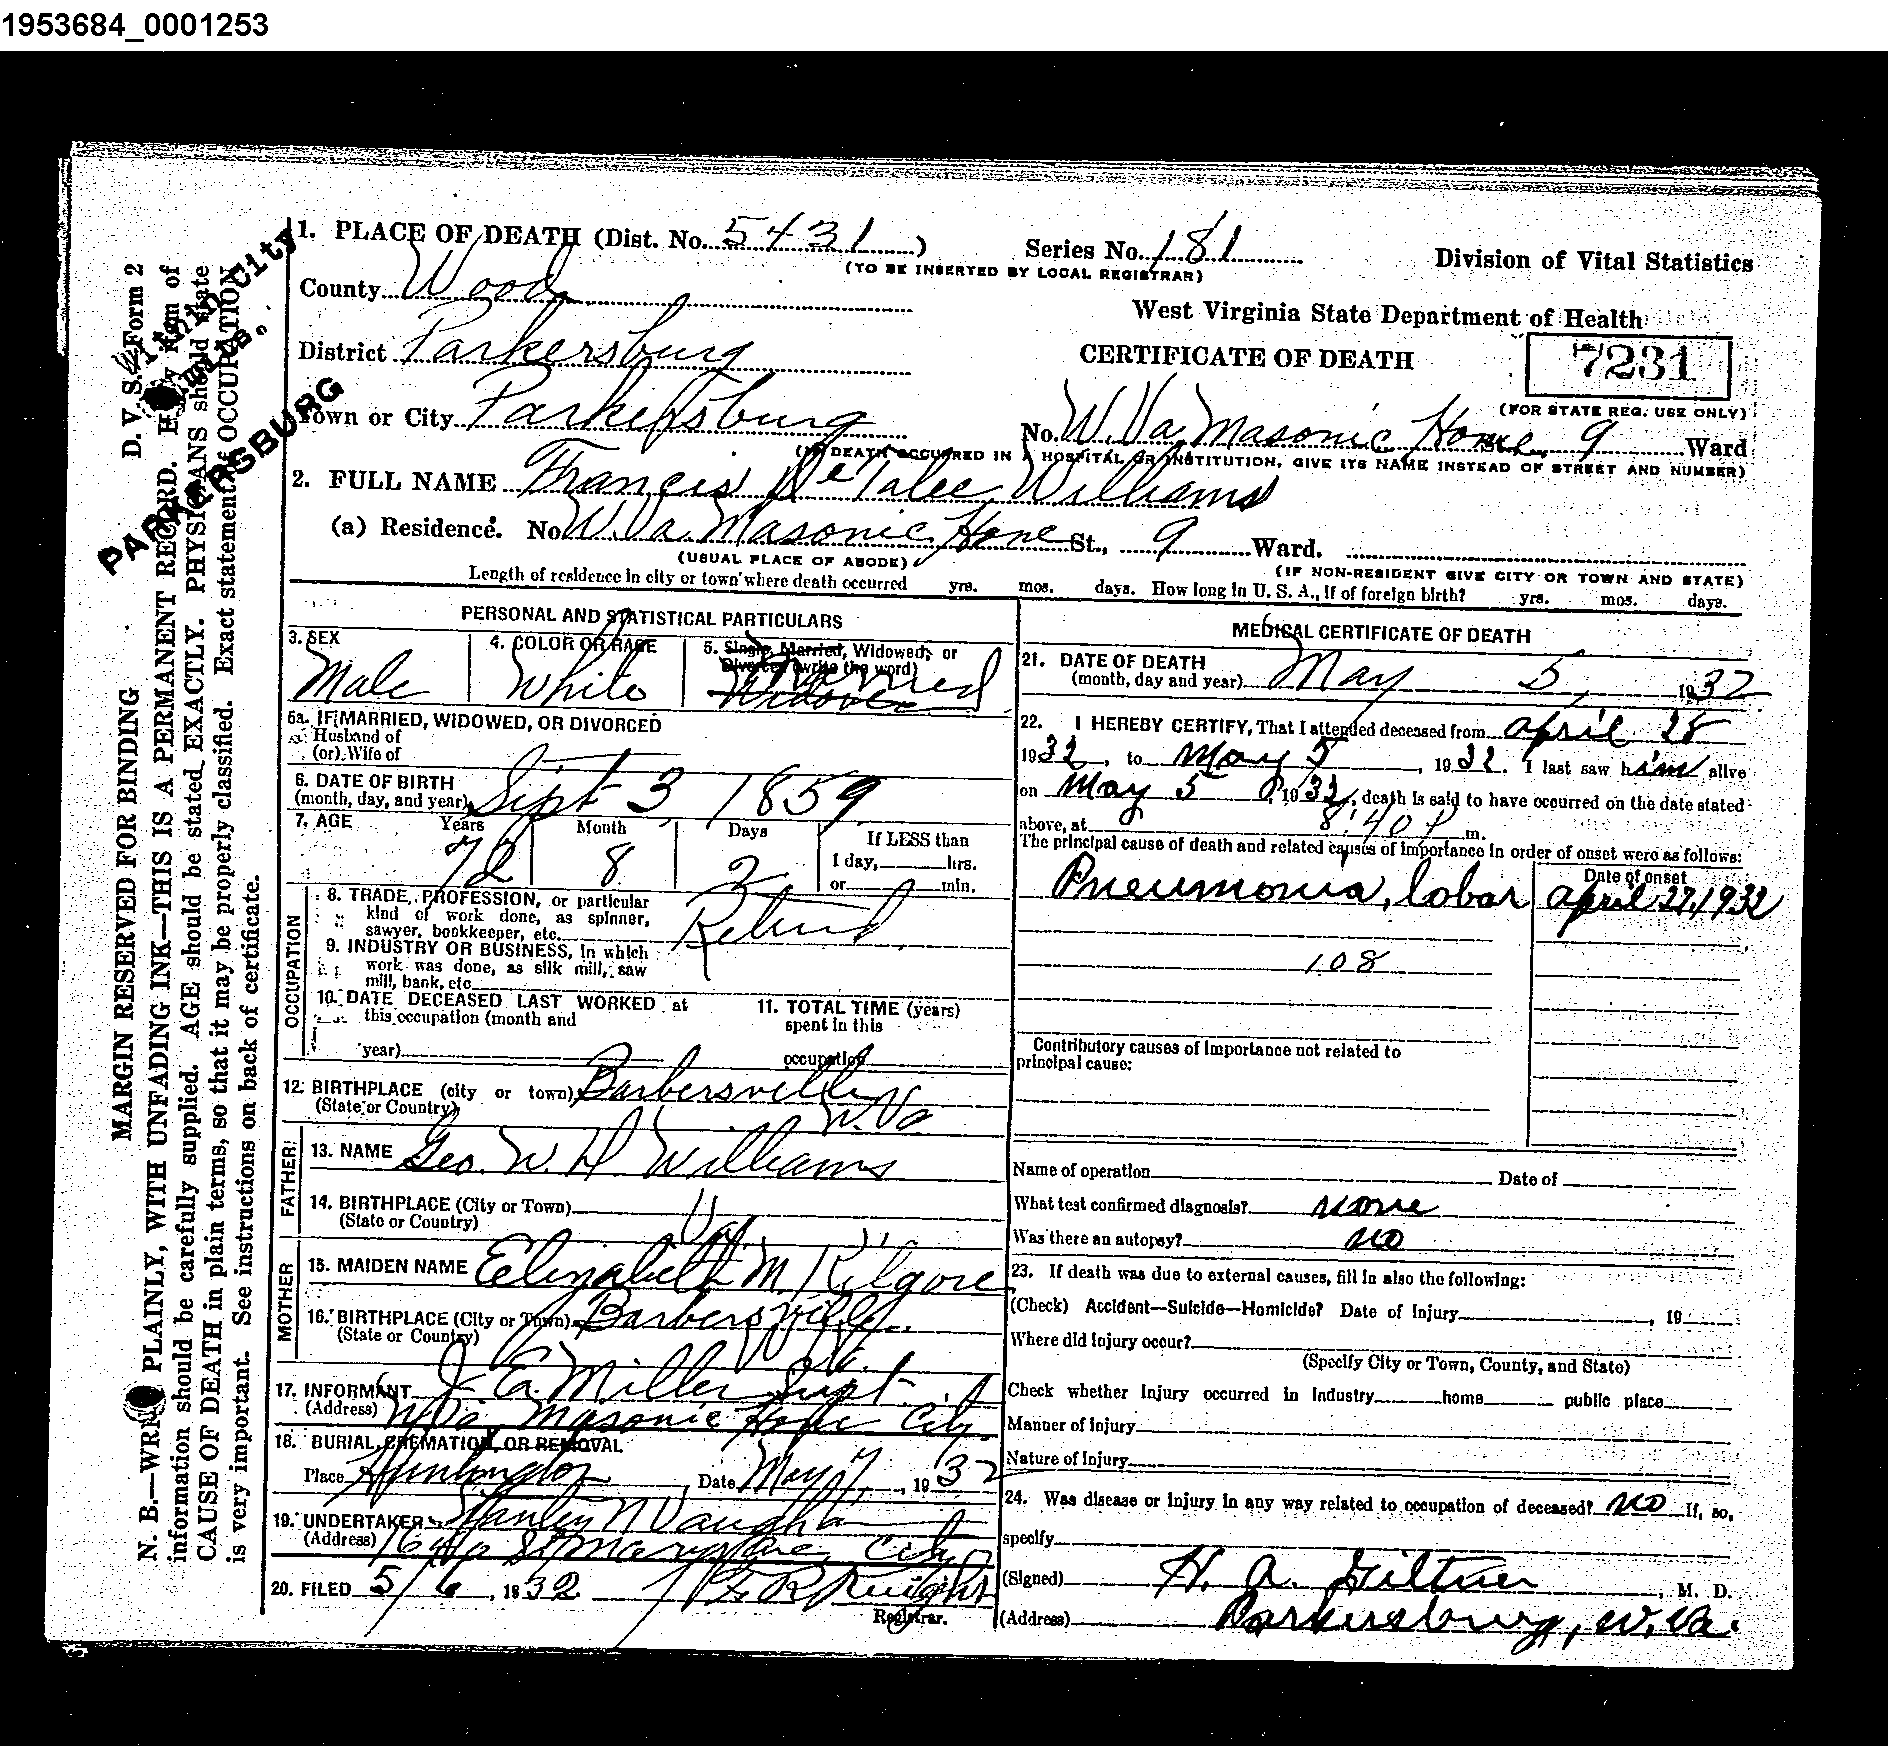 1953684_0001253
1. PLACE OF DEATH (Dist. No. 5431)
Series No. 181
(TO BE INSERTED BY LOCAL REGISTRAR)
Division of Vital Statistics
County Wood
West Virginia State Department of Health
District Parkersburg
CERTIFICATE OF DEATH
7231
(FOR STATE REG. USE ONLY)
Town or City Parkersburg
No. W. Va. Masonic Home St. 9 Ward
(IF DEATH OCCURRED IN A HOSPITAL OR INSTITUTION, GIVE ITS NAME INSTEAD OF STREET AND NUMBER)
2. FULL NAME Francis Williams
(a) Residence. No. W. Va. Masonic Home St., 9 Ward.
(USUAL PLACE OF ABODE)
(IF NON-RESIDENT GIVE CITY OR TOWN AND STATE)
Length of residence in city or town where death occurred yrs. mos. days. How long in U. S. A., if of foreign birth? yrs. mos. days.
PERSONAL AND STATISTICAL PARTICULARS
3. SEX
Male
4. COLOR OR RACE
White
5. Single, Married, Widowed, or
Divorced (write the word)
Married
Widower
5a. IF MARRIED, WIDOWED, OR DIVORCED
Husband of
(or) Wife of
6. DATE OF BIRTH
(month, day, and year) Sept 3, 1859
7. AGE Years Month Days If LESS than
72 8 2 1 day, hrs.
or min.
OCCUPATION
8. TRADE, PROFESSION, or particular
kind of work done, as spinner,
sawyer, bookkeeper, etc. Retired
9. INDUSTRY OR BUSINESS, in which
work was done, as silk mill, saw
mill, bank, etc
10. DATE DECEASED LAST WORKED at
this occupation (month and
year)
11. TOTAL TIME (years)
spent in this
occupation
12. BIRTHPLACE (city or town) Barbersville
(State or Country) W. Va
FATHER
13. NAME Geo. W. H Williams
14. BIRTHPLACE (City or Town)
(State or Country) Va.
MOTHER
15. MAIDEN NAME Elizabeth M. Kilgore
16. BIRTHPLACE (City or Town) Barbersville
(State or Country)
17. INFORMANT J. E. Miller Supt.
(Address) W Va Masonic Home City
18. BURIAL, CREMATION, OR REMOVAL
Place Huntington, Date May 7, 1932
19. UNDERTAKER Stanley N Vaughan
(Address) St Marys Ave City
20. FILED 5/6, 1932 R Knight
Registrar.
MEDICAL CERTIFICATE OF DEATH
21. DATE OF DEATH
(month, day and year) May 5, 1932
22. I HEREBY CERTIFY, That I attended deceased from April 28
1932, to May 5, 1932. I last saw him alive
on May 5, 1932, death is said to have occurred on the date stated
above, at 8:40 P m.
The principal cause of death and related causes of importance in order of onset were as follows:
Date of onset
Pneumonia, lobar April 27, 1932
108
Contributory causes of importance not related to
principal cause:
Name of operation Date of
What test confirmed diagnosis? none
Was there an autopsy? no
23. If death was due to external causes, fill in also the following:
(Check) Accident—Suicide—Homicide? Date of Injury , 19
Where did injury occur?
(Specify City or Town, County, and State)
Check whether injury occurred in industry home public place
Manner of injury
Nature of Injury
24. Was disease or injury in any way related to occupation of deceased? no If, so,
specify
(Signed) H. A. Giltner, M. D.
(Address) Parkersburg, W. Va.
D. V. S. Form 2
MARGIN RESERVED FOR BINDING
N. B.—WRITE PLAINLY, WITH UNFADING INK—THIS IS A PERMANENT RECORD. Every item of
information should be carefully supplied. AGE should be stated EXACTLY. PHYSICIANS should state
CAUSE OF DEATH in plain terms, so that it may be properly classified. Exact statement of OCCUPATION
is very important. See instructions on back of certificate.
City
PARKERSBURG